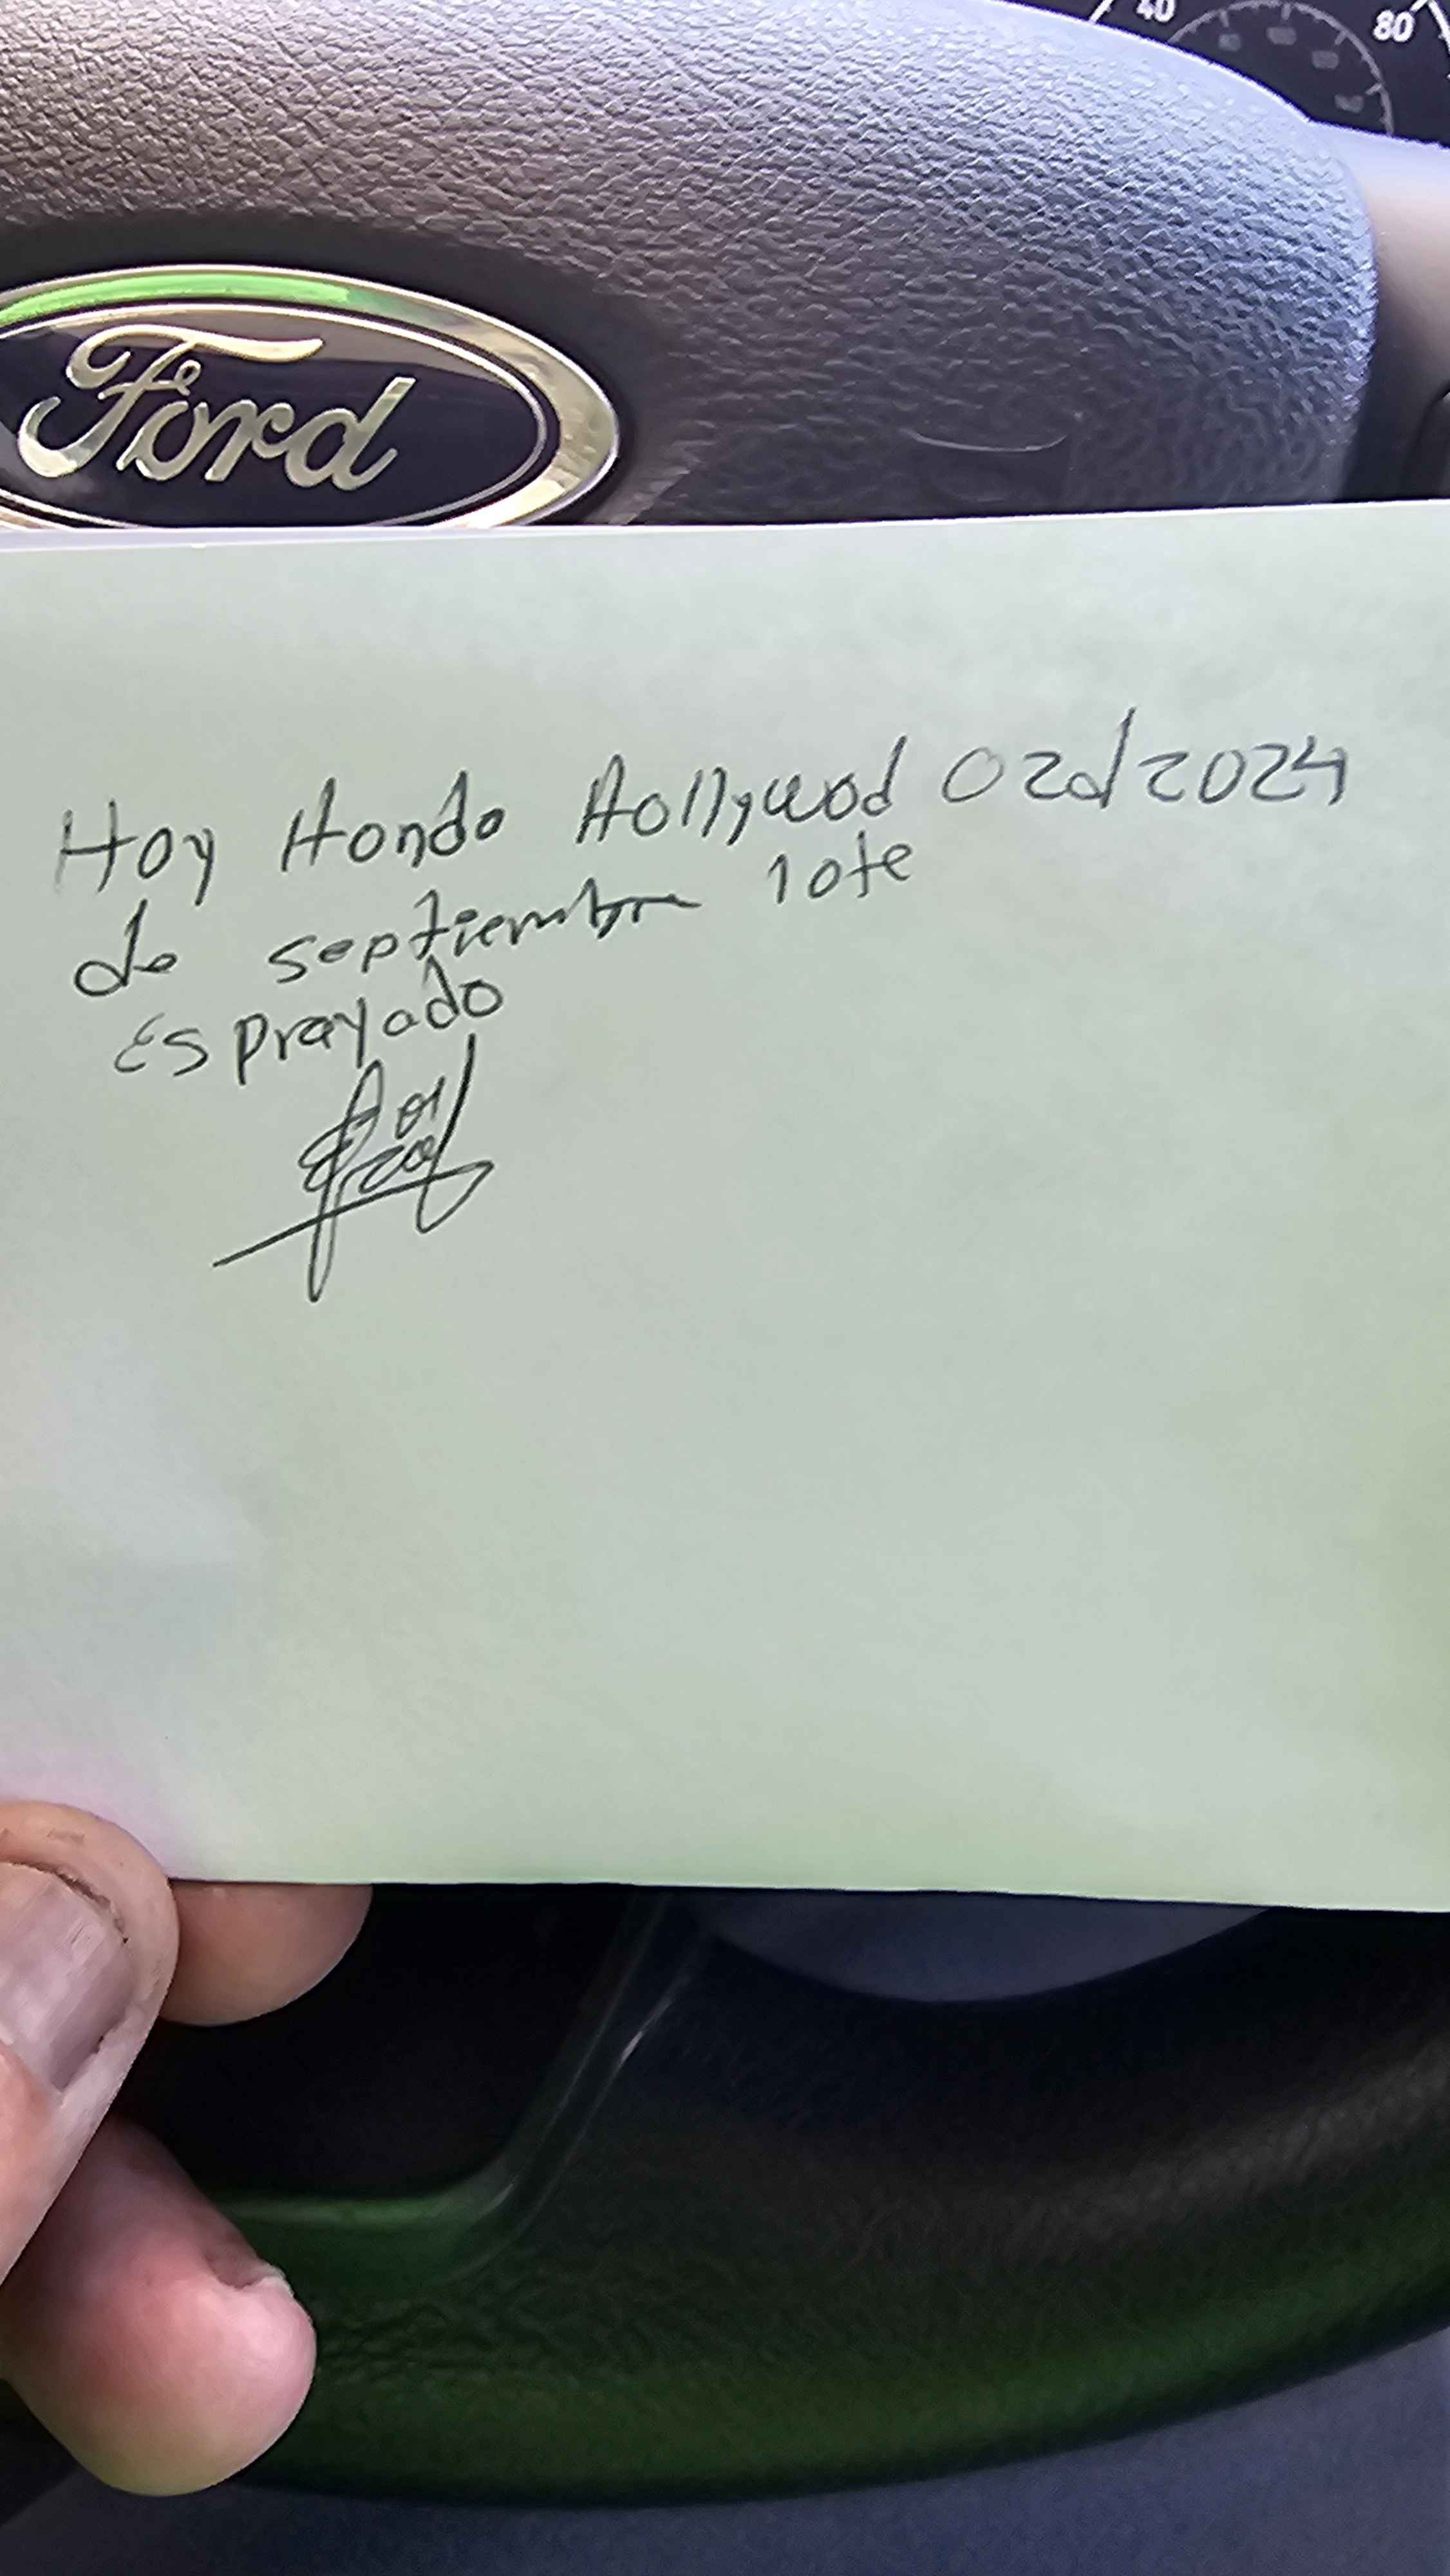 40
80
Ford
Hoy Honda Hollywod 02d/2024
de septiembre lote
Esprayado